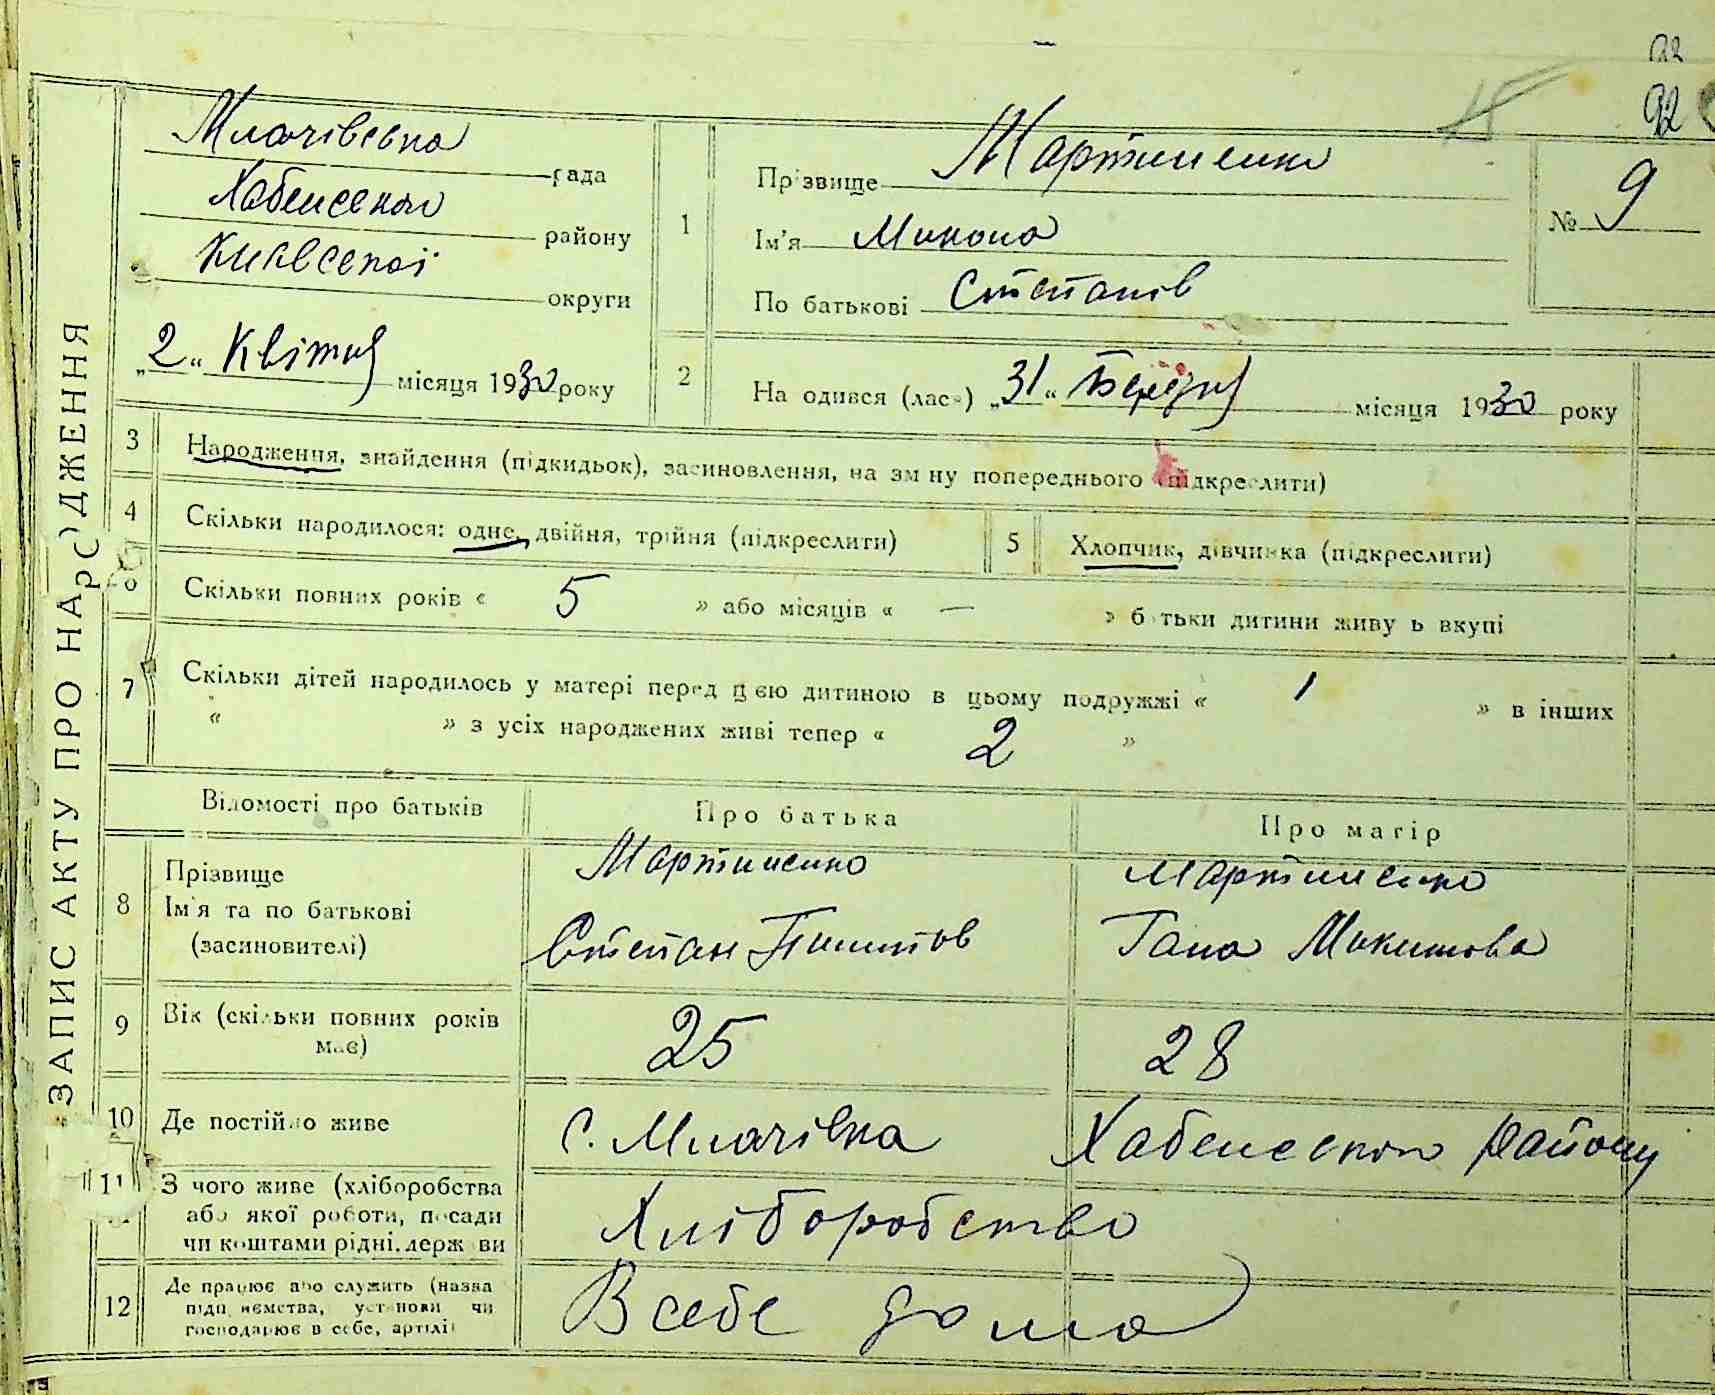 92
92
ЗАПИС АКТУ ПРО НАРОДЖЕННЯ
Млачівська рада
Хабенского району
Київскої округи
„2“ Квітня місяця 1930 року
1
Прізвище Мартиненко
Ім'я Микола
По батькові Степанів
№ 9
2
На одився (лась) „31“ Березня місяця 1930 року
3 Народження, знайдення (підкидьок), засиновлення, на зм ну попереднього (підкреслити)
4 Скільки народилося: одне, двійня, трійня (підкреслити)
5 Хлопчик, дівчинка (підкреслити)
6 Скільки повних років « 5 » або місяців « — » б тьки дитини живу ь вкупі
7 Скільки дітей народилось у матері перед цією дитиною в цьому подружжі « 1 » в інших
« » з усіх народжених живі тепер « 2 »
Відомості про батьків Про батька Про матір
8 Прізвище
Ім'я та по батькові
(засиновителі)
Мартиненко
Степан Пилипов
Мартиненко
Гана Микитова
9 Вік (скільки повних років
має)
25 28
10 Де постійно живе с. Млачівка Хабенского району
11 З чого живе (хліборобства
або якої роботи, посади
чи коштами рідні, держ ви
Хліборобство
12 Де працює або служить (назва
підп иємства, установи чи
господарює в себе, артілі
В себе дома